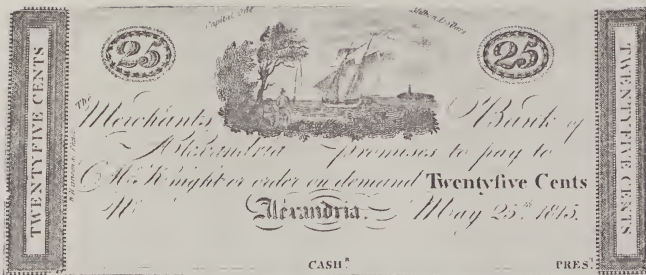 Capital Add Million Dollars
25 25
TWENTYFIVE CENTS
The Merchants Bank of
Alexandria promises to pay to
McKnight or order on demand Twentyfive Cents
No Alexandria. May 25th 1815.
CASHR. PREST.
TWENTYFIVE CENTS